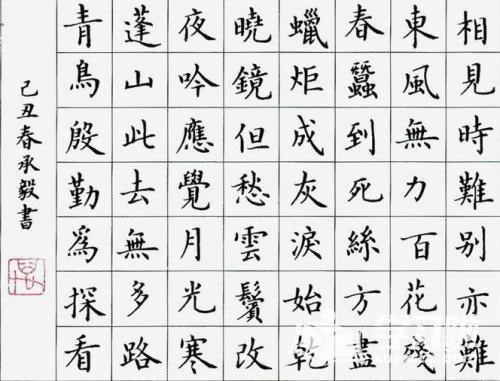 相見時難别亦難
東風無力百花殘
春蠶到死絲方盡
蠟炬成灰淚始乾
曉鏡但愁雲鬢改
夜吟應覺月光寒
蓬山此去無多路
青鳥殷勤爲探看
己丑春承毅書